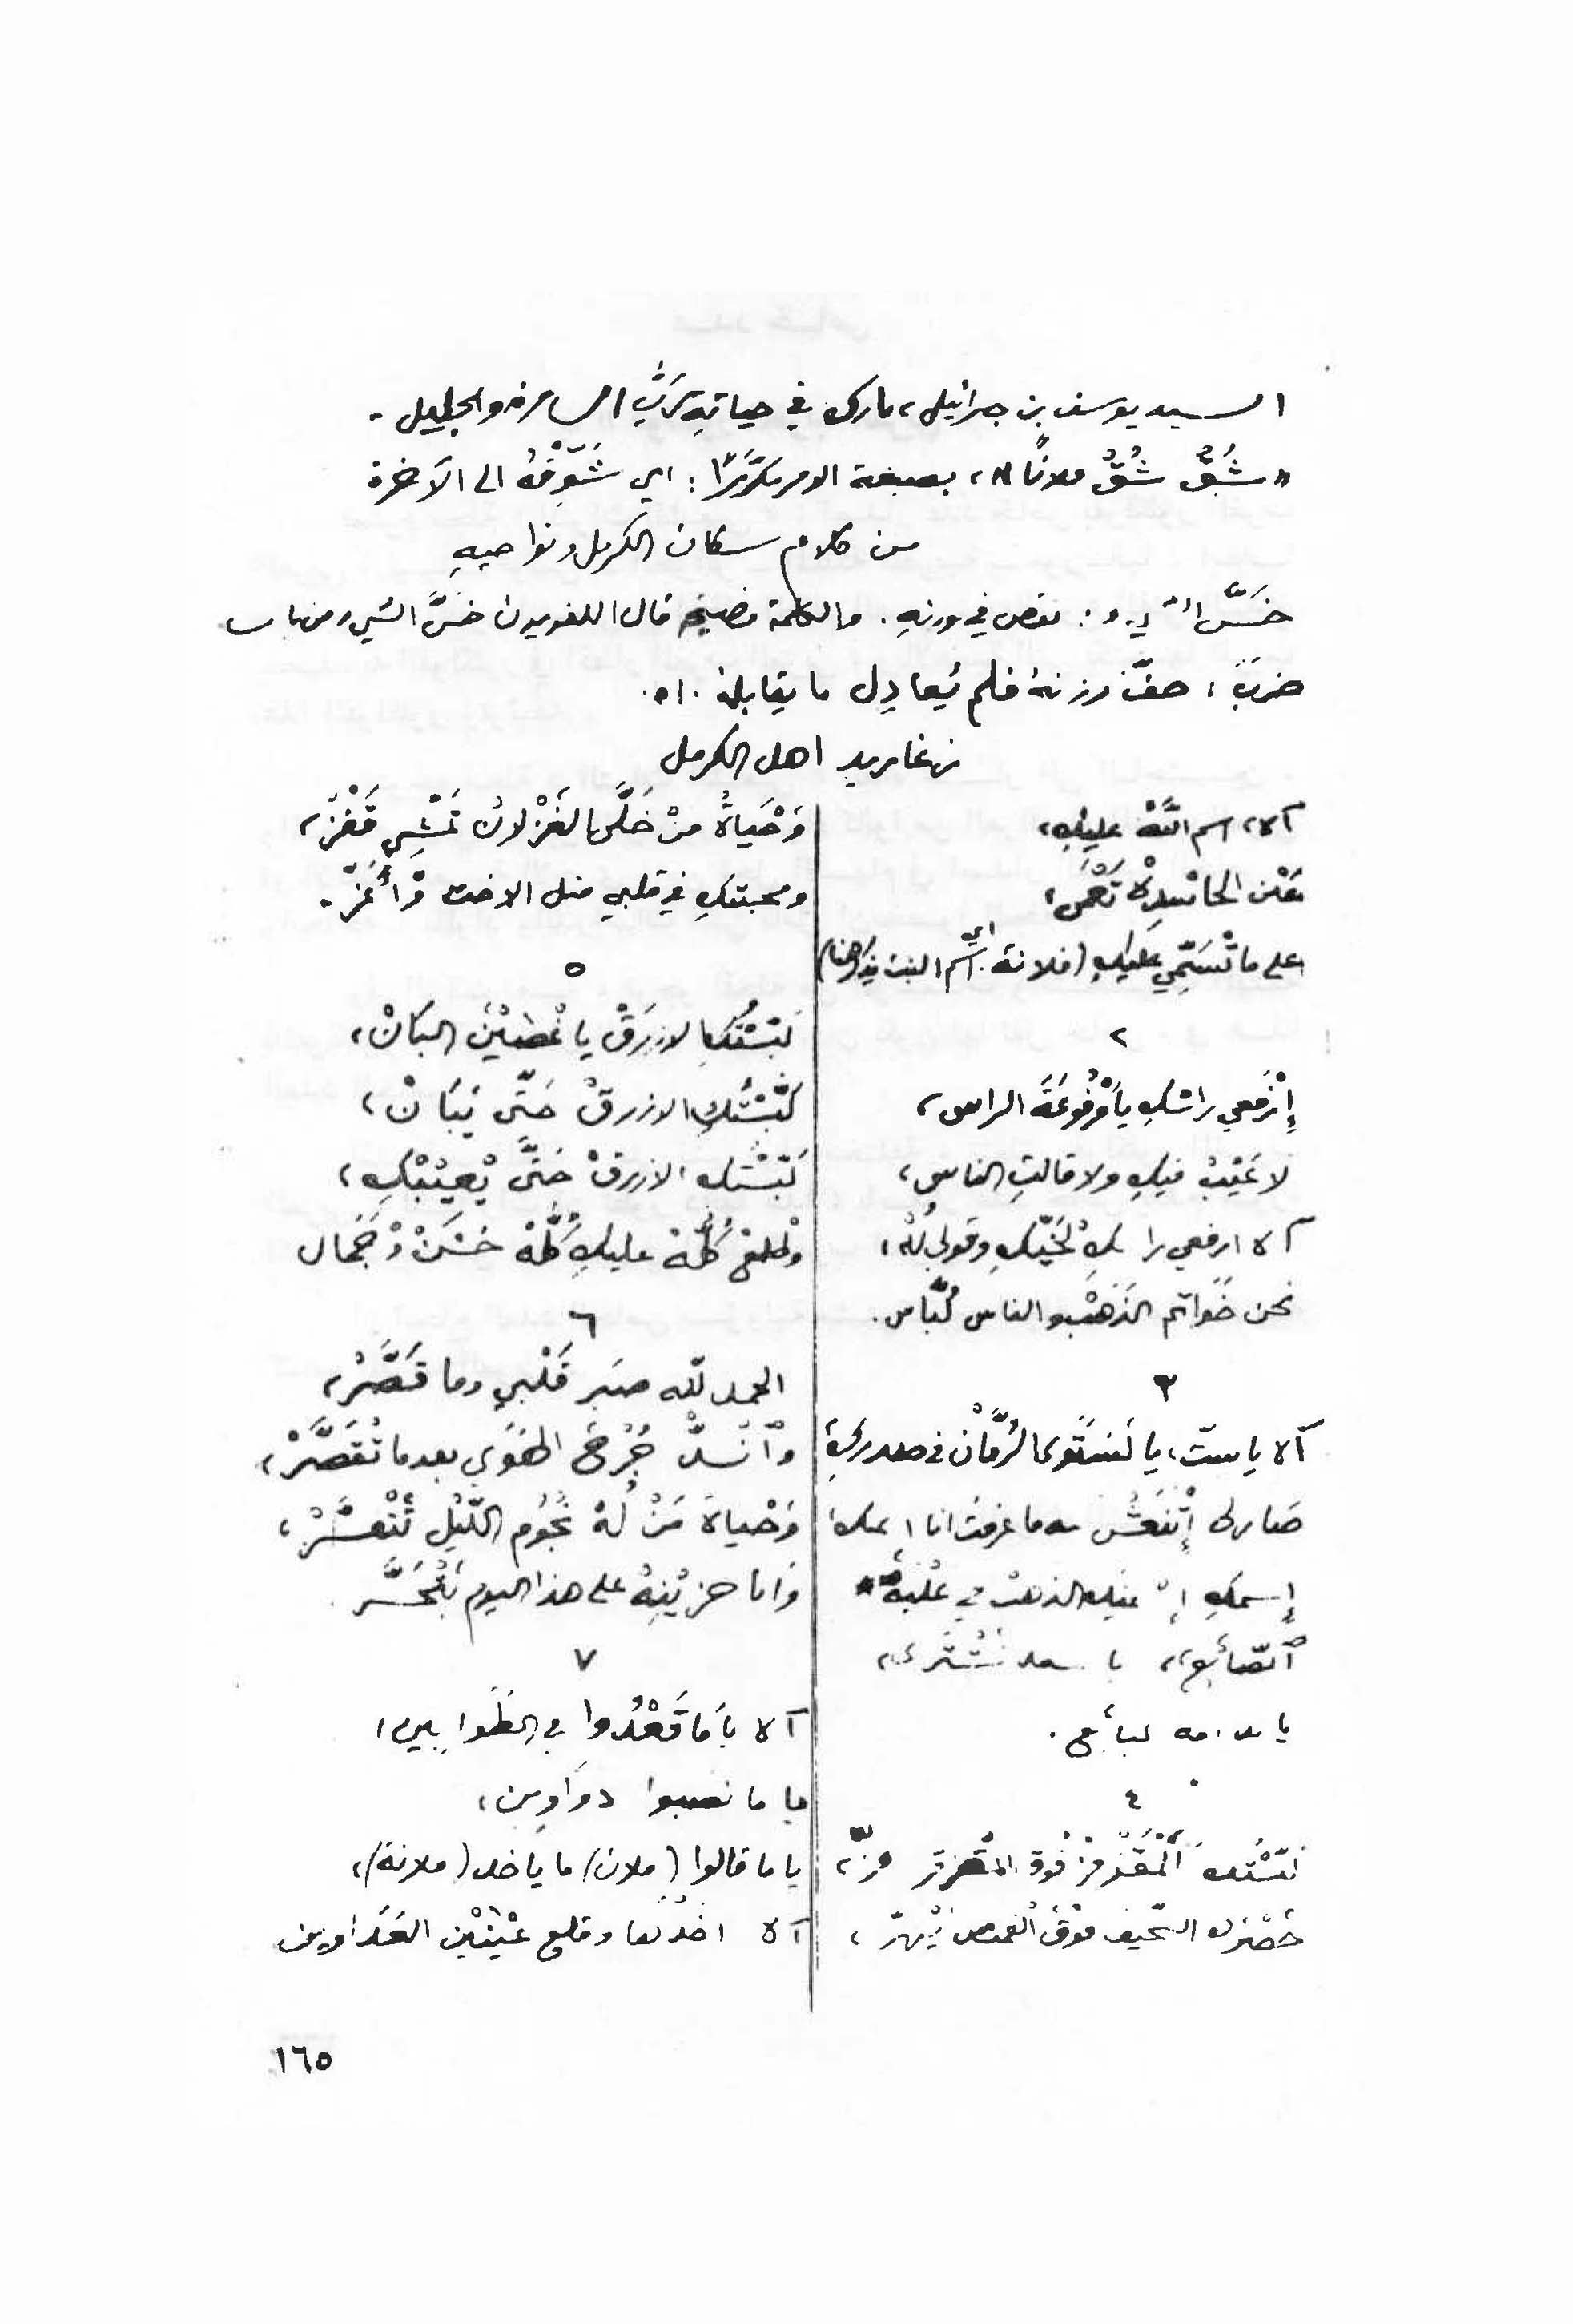 السيد يوسف بن جبرائيل، بارك في حياتهِ يَربُّ السامرة والجليل.
«شُقْ شُقْ فلانًا»، بصيغة الامر مكرَّرًا: اي شَوِّقْهُ الى الآخرة
من كلام سكان الكرمل ونواحيهِ
خَسَّ الشيء: نقص في وزنهِ. والكلمة فصيحة قال اللغويون خسَّ الشيء من باب
ضرَبَ: خفَّ وزنهُ فلم يُعادِل ما يقابلهُ. اه.
زغاريد اهل الكرمل
آلا، اسم اللَّهْ عليكِ،
عَيْن الحاسْدِهْ تَعْمَى،
على ما تْسَمِّي عليكِ (فلانة: اي اسم البنت يذكر هنا)
٢
إِرْفَعي راسْكِ يا مَرْفُوعَةَ الراس،
لا عَيْبْ فيكِ ولا قالتِ الناس،
آلا ارفعي راسكِ لَخَيّكِ وقولي لُهْ،
نحن خَواتم الذَهَبْ والناس لُبَّاس.
٣
آلا يا ستّ، يا تستوى الرُمَّانْ في صدركِ
صار لي إتْنَعَشْ سنه ما عرفت انا اسمك
إسمكِ الذهبْ في عُلْبِة
الصّائِغ،، يا نشترى،،
يا لبايع.
٤
لبَّسْتك فوق عزّ،
خَصْرك النّحيف فوْق القميص يْهزّ،
وَحْيَاةْ مَنْ خَلَّى الغَزْلان تَمْشِي قَفْزْ،
ومحبتكِ في قلبي مثل الاخت وْأَعَزّ.
٥
لَبَّسْتُكِ الازرَقْ يا غْصَيْنَ البَانْ،
لَبَّسْتُكِ الازرقْ حَتَّى يَبَانْ،
لَبَّسْتك الازرقْ حَتَّى يْعيْبْكِ،
وْطلع كُلُّهْ عليكِ كُلُّهْ حُسْنْ وْجَمال
٦
الحمد للّه صبَر قَلْبي وما قَصَّرْ،
وآنْسَدّ جُرْح الهَوَى بعد ما تْقَصَّرْ،
وَحْياةَ مَنْ لُهْ نْجُوم اللّيْل
وَانا حزيْنِهْ على هذا اليوم بَتْحَسَّر
٧
آلا يا ما قَعْدُوا في الطَوابين،
يا ما نصبوا دواوين،
يا ما قالوا (فلان) ما ياخد (فلانة)،
آلا اخدْها وقلع عْيْنَيْن العَدَاوين
١٦٥